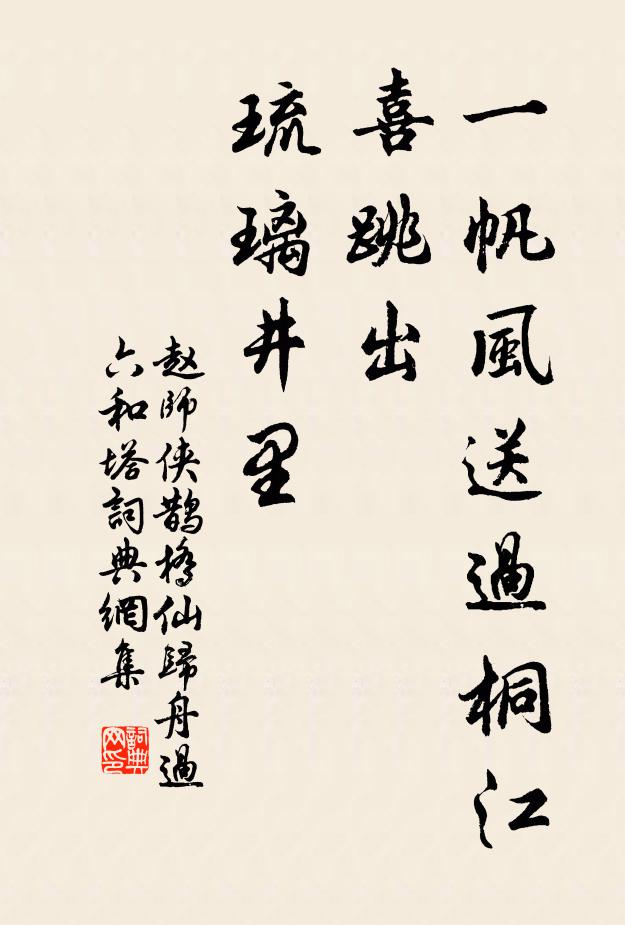 一帆風送過桐江
喜跳出
琉璃井里
赵師侠鵲橋仙歸舟過
六和塔詞典網集
詞典网印